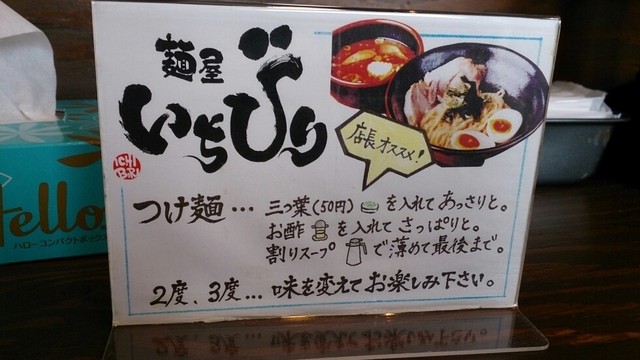 麺屋
いちびり
ICHI
BIRI
店長オススメ!
つけ麺… 三つ葉(50円)を入れてあっさりと。
お酢を入れてさっぱりと。
割りスープで薄めて最後まで。
2度、3度… 味を変えてお楽しみ下さい。
Hello
ハローコンパクトボックス